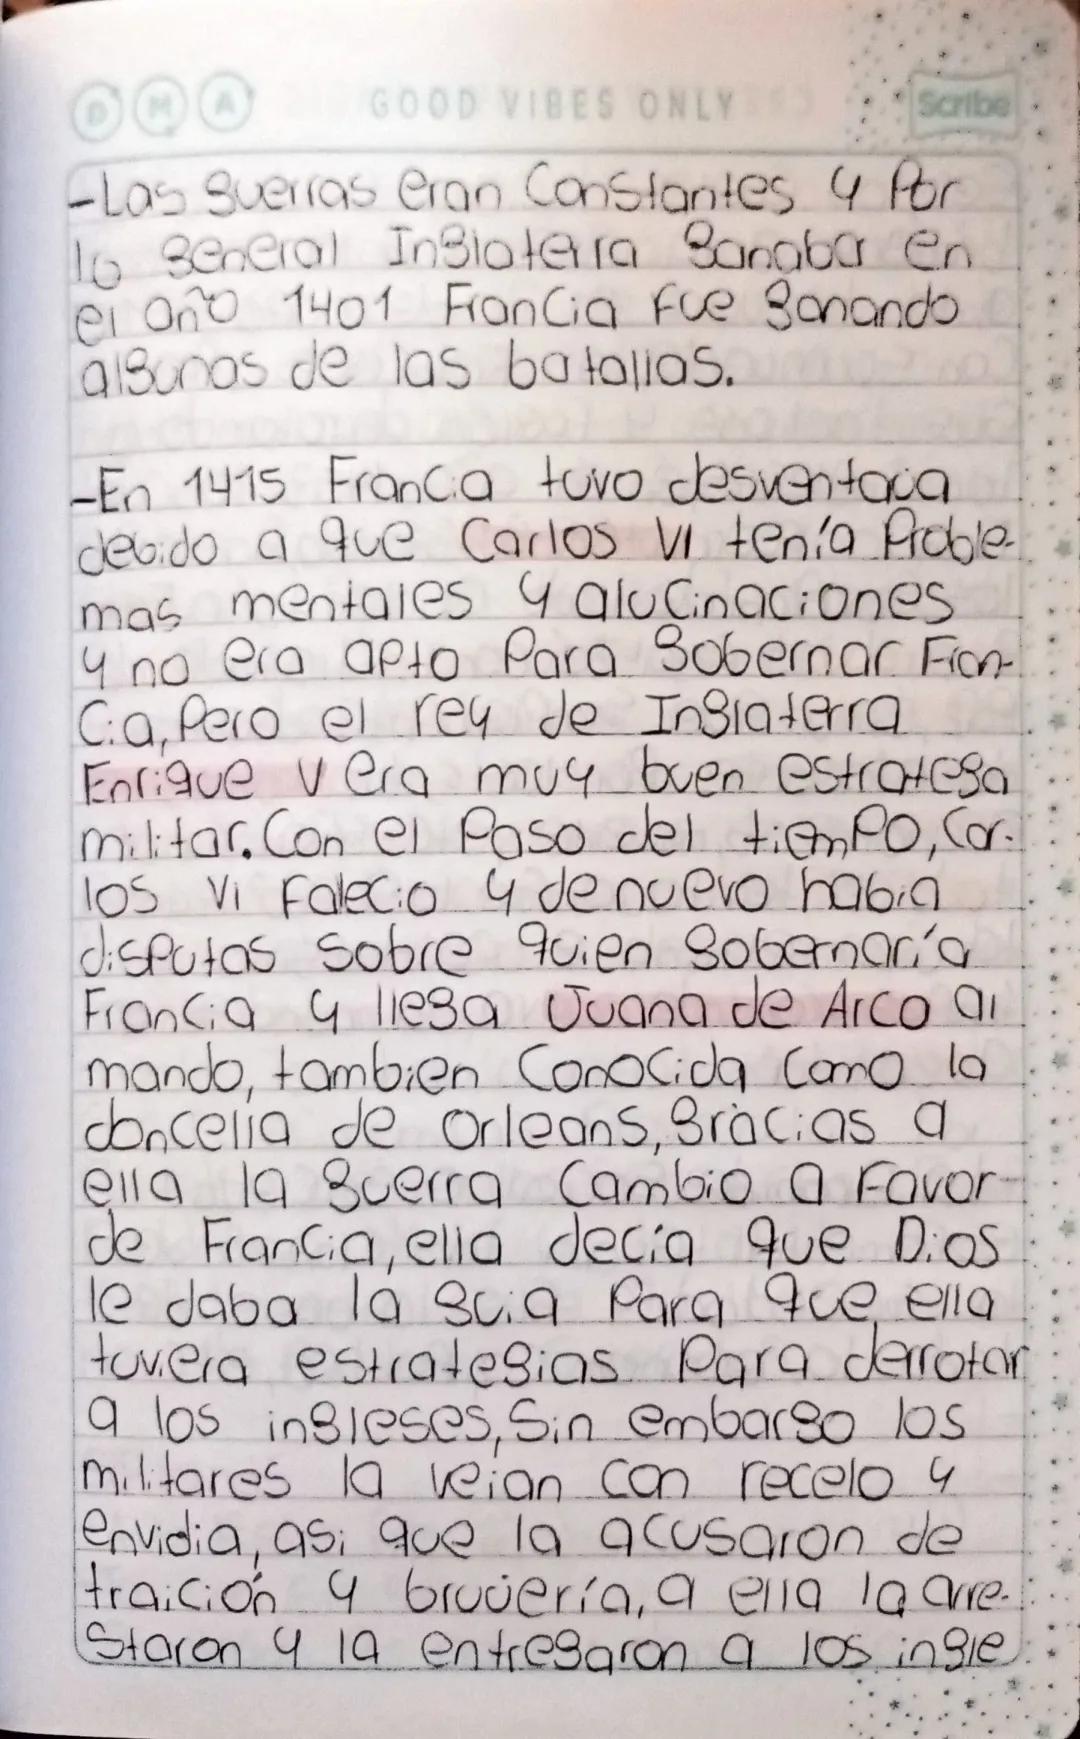 D M A GOOD VIBES ONLY Scribe
-Las guerras eran Constantes y Por
lo general Inglaterra ganaba en
el año 1401 Francia fue ganando
algunas de las batallas.
-En 1415 Francia tuvo desventaja
debido a que Carlos VI tenía Proble-
mas mentales y alucinaciones
y no era apto Para gobernar Fran-
Cia, Pero el rey de Inglaterra
Enrique V era muy buen estratega
militar. Con el Paso del tiempo, Car-
los VI Falecio y de nuevo habia
disputas sobre quien gobernaría
Francia y llega Juana de Arco al
mando, tambien Conocida Como la
doncella de Orleans, gracias a
ella la guerra Cambio a Favor
de Francia, ella decía que Dios
le daba la guia Para que ella
tuviera estrategias Para derrotar
a los ingleses, Sin embargo los
militares la veian con recelo y
envidia, asi que la acusaron de
traición y brujería, a ella la arre-
staron y la entregaron a los ingle